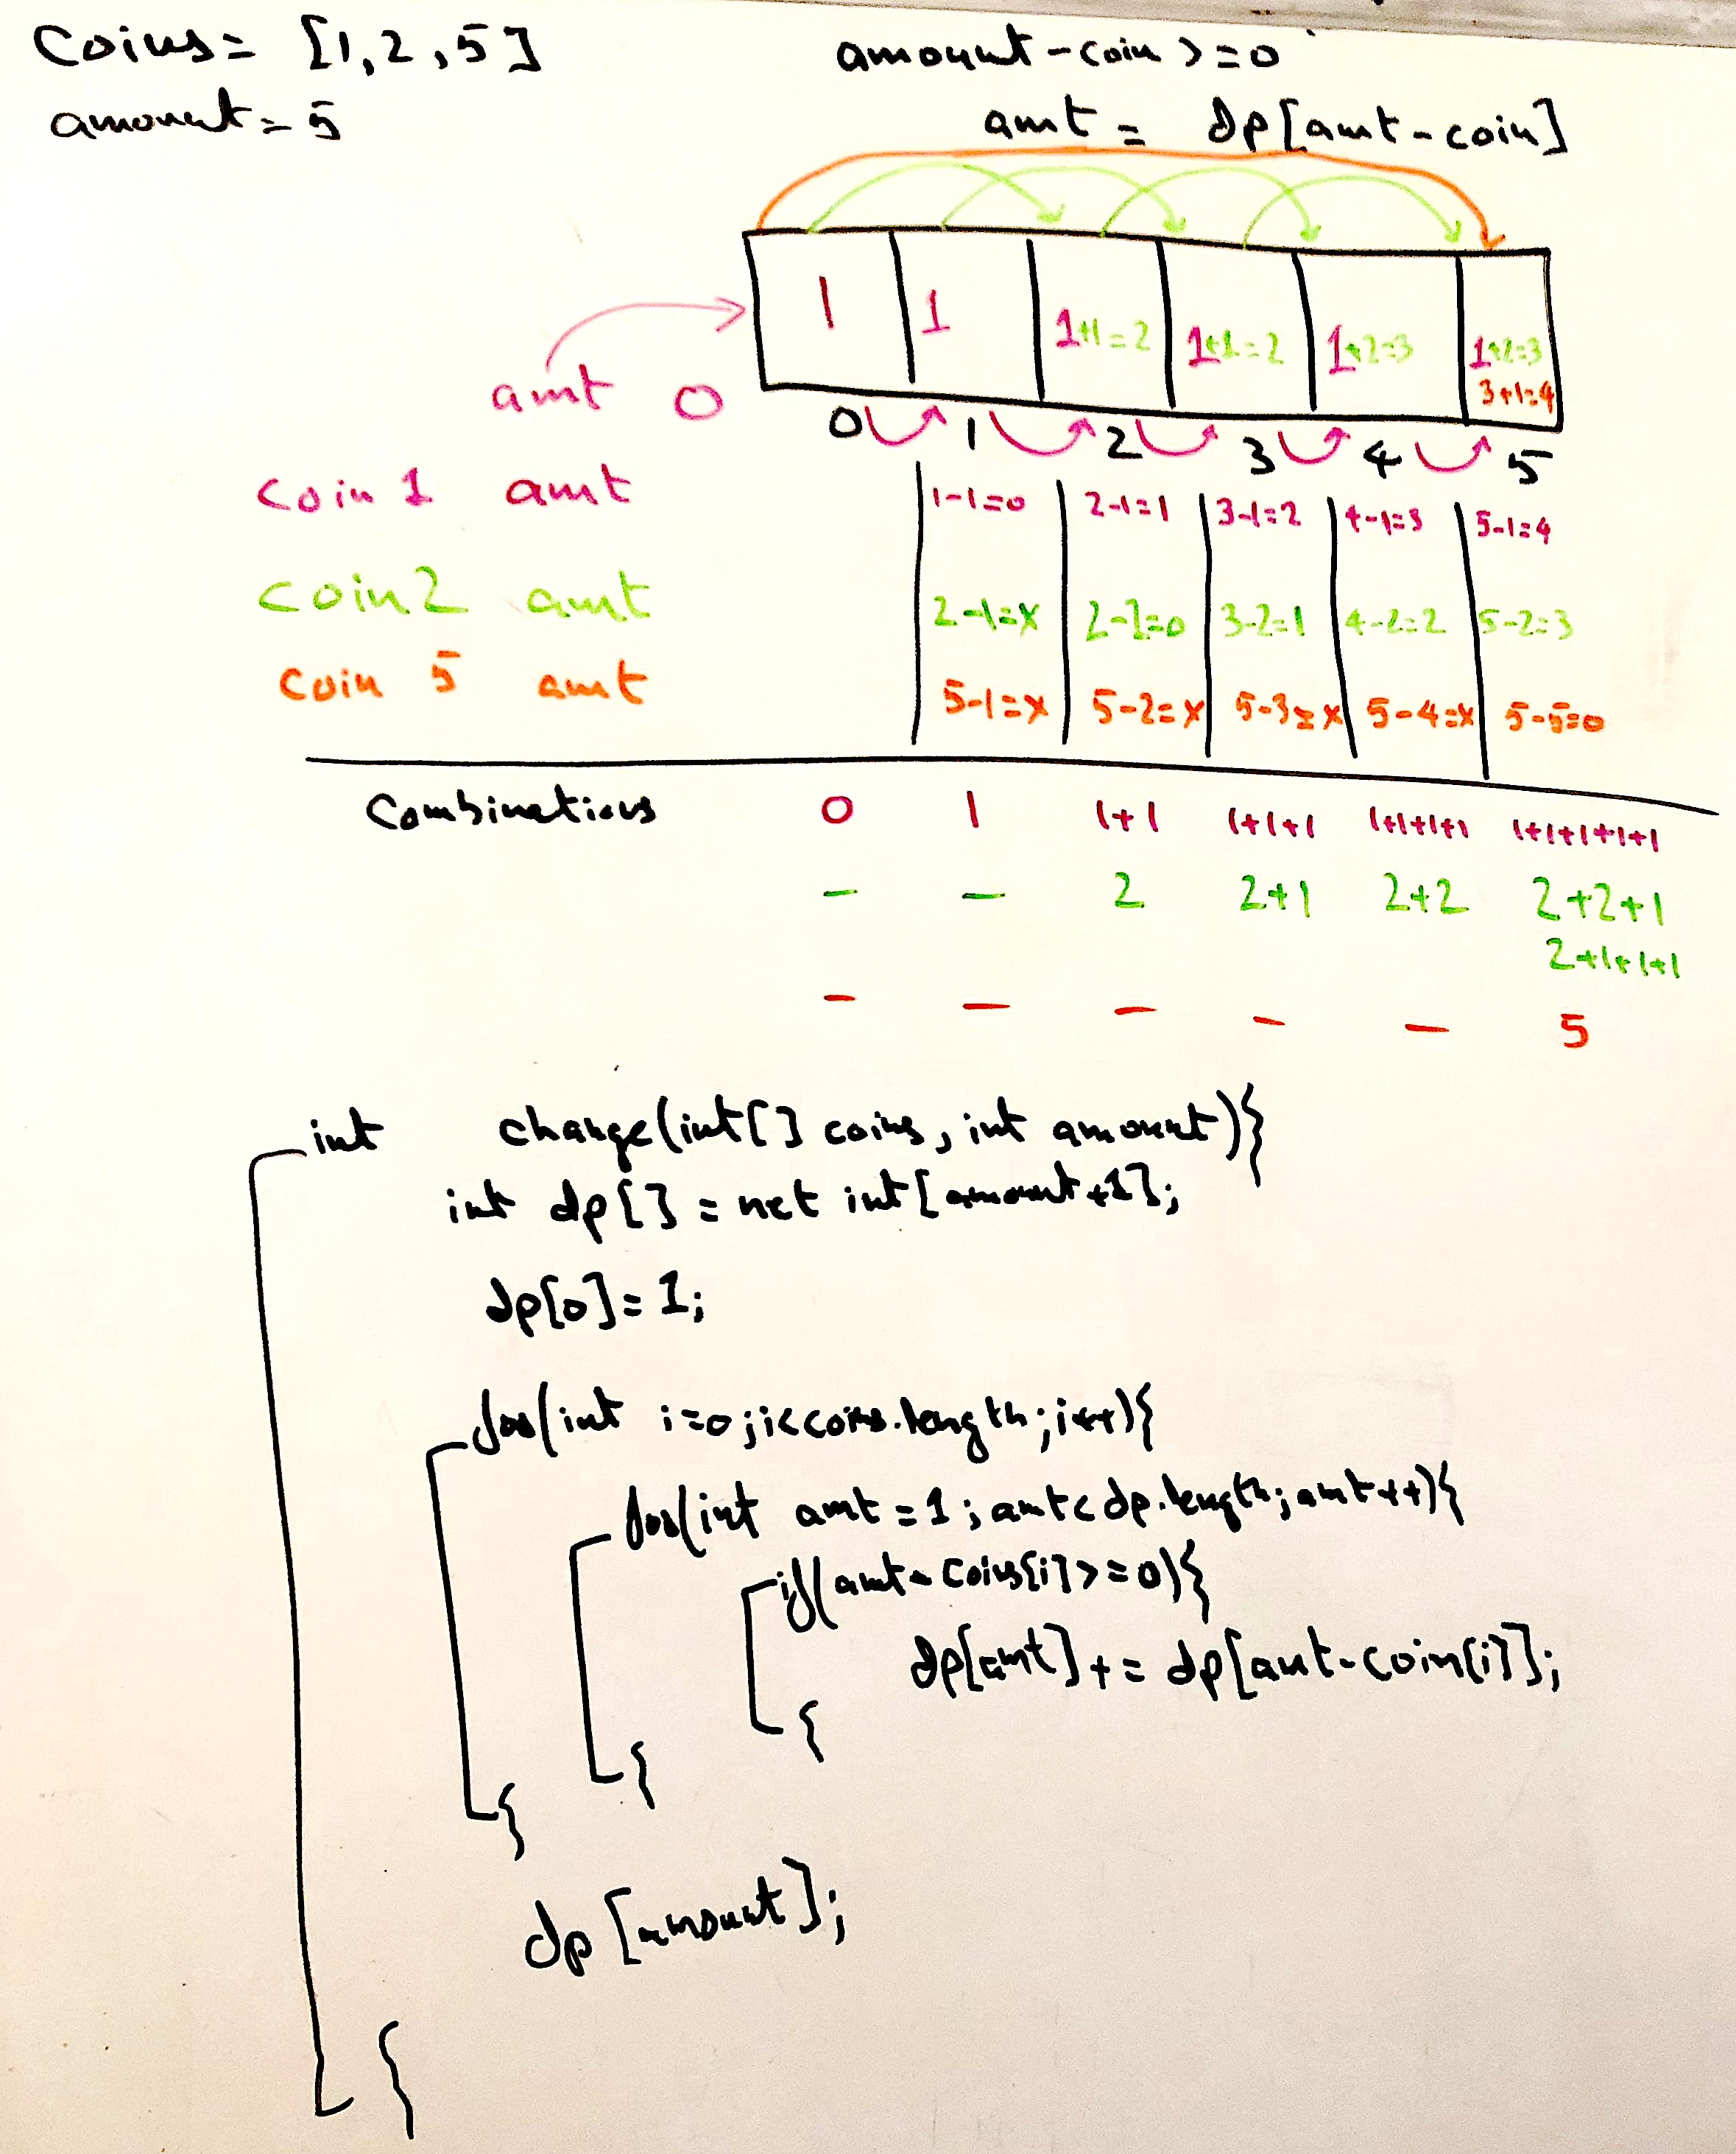 Coins= [1,2,5]
amount=5
amount-coin >=0
amt = dp[amt-coin]
1 1 1+1=2 1+1=2 1+2=3 1+2=3
3+1=4
amt 0
0 1 2 3 4 5
coin 1 amt 1-1=0 2-1=1 3-1=2 4-1=3 5-1=4
coin 2 amt 2-1=x 2-2=0 3-2=1 4-2=2 5-2=3
coin 5 amt 5-1=x 5-2=x 5-3=x 5-4=x 5-5=0
Combinations 0 1 1+1 1+1+1 1+1+1+1 1+1+1+1+1
- - 2 2+1 2+2 2+2+1
2+1+1+1
- - - - - 5
int change(int[] coins, int amount){
int dp[] = net int[amount+1];
dp[0]=1;
for(int i=0;i<coins.length;i++){
for(int amt=1;amt<dp.length;amt++){
if(amt-coins[i]>=0){
dp[amt]+=dp[amt-coin[i]];
{
{
{
dp[amount];
{